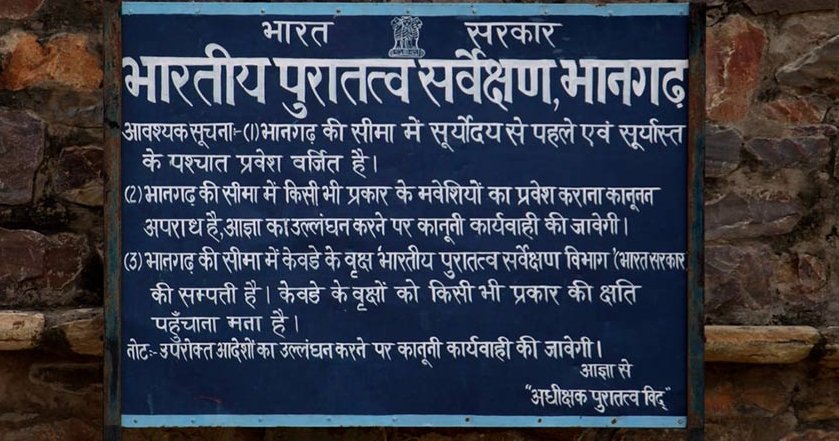 भारत सरकार
भारतीय पुरातत्व सर्वेक्षण, भानगढ़
आवश्यक सूचना:-(1) भानगढ़ की सीमा में सूर्योदय से पहले एवं सूर्यास्त
के पश्चात प्रवेश वर्जित है।
(2) भानगढ़ की सीमा में किसी भी प्रकार के मवेशियों का प्रवेश कराना कानूनन
अपराध है, आज्ञा का उल्लंघन करने पर कानूनी कार्यवाही की जावेगी।
(3) भानगढ़ की सीमा में केवडे के वृक्ष 'भारतीय पुरातत्व सर्वेक्षण विभाग' (भारत सरकार
की सम्पती है। केवडे के वृक्षों को किसी भी प्रकार की क्षति
पहुँचाना मना है।
नोट:- उपरोक्त आदेशों का उल्लंघन करने पर कानूनी कार्यवाही की जावेगी।
आज्ञा से
"अधीक्षक पुरातत्व विद्"